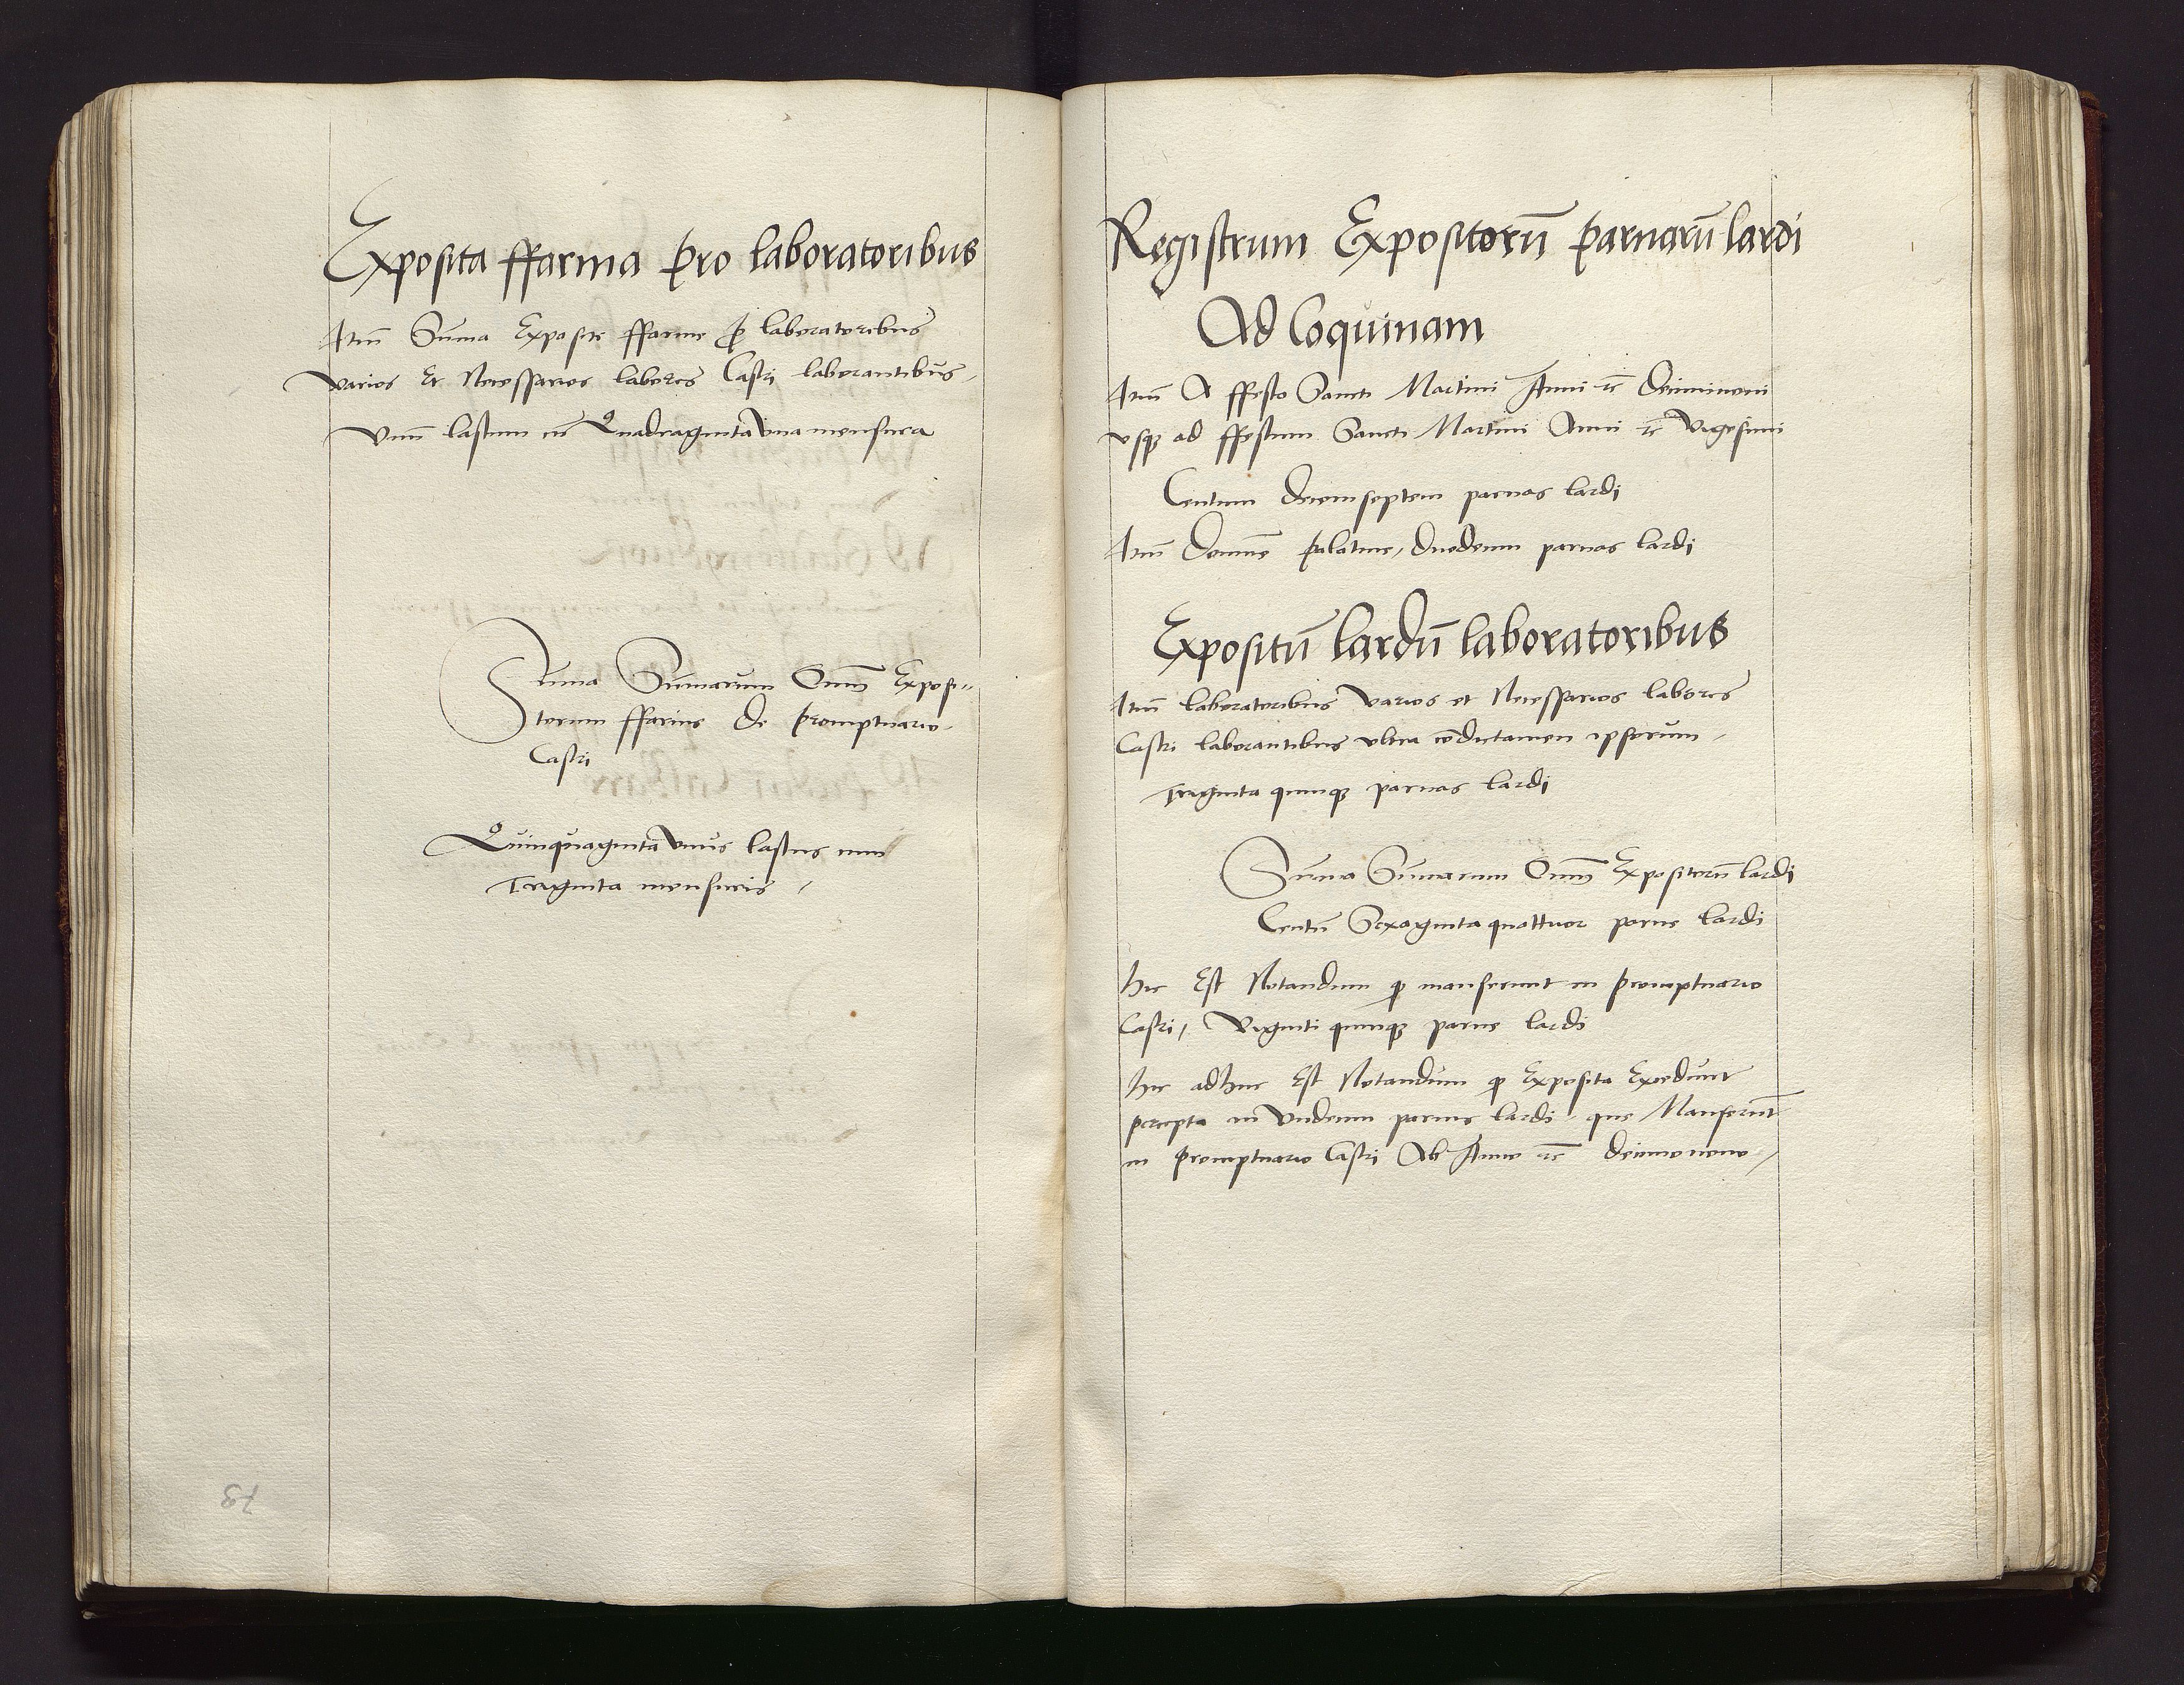 Exposita ffarina pro laboratoribus
Itm̄ Sum̄a Exposite ffarine ꝑ laboratoribus
varios Et Necessarios labores Castri laborantibus,
vnū lastum et Quadraginta vna mensura
Sum̄a Sum̄arum Om̄m Exposi⸗
torum ffarine De promptuario
Castri
Quinquaginta vnus lastus cum
Traginta mensuris,
78
Registrum Expositorū parnarū lardi
Ad Coquinam
Itm̄ A ffesto Sancti Martini Anni ꝛc̄ Deciminoni
vsqꝫ ad ffestum Sancti Martini Anni ꝛc̄ Vigesimi
Centum Decemseptem parnas lardi
Itm̄ Domine palatine, Duodecim parnas lardi
Expositū lardū laboratoribus
Itm̄ laboratoribus varios et Necessarios labores
Castri laborantibus vltra condictamen ipsorum,
Traginta quinqꝫ parnas lardi
Sum̄a Sum̄arum Om̄m Expositorū lardi
Centū Sexaginta quattuor parne lardi
Hic Est Notandum ꝙ manserunt in promptuario
Castri, Viginti quinqꝫ parne lardi
Hic adhuc Est Notandum ꝙ Exposita Excedunt
percepta in Vndecim parnis lardi, que Manserūt
in promptuario Castri Ab Anno ꝛc̄ decimonono,